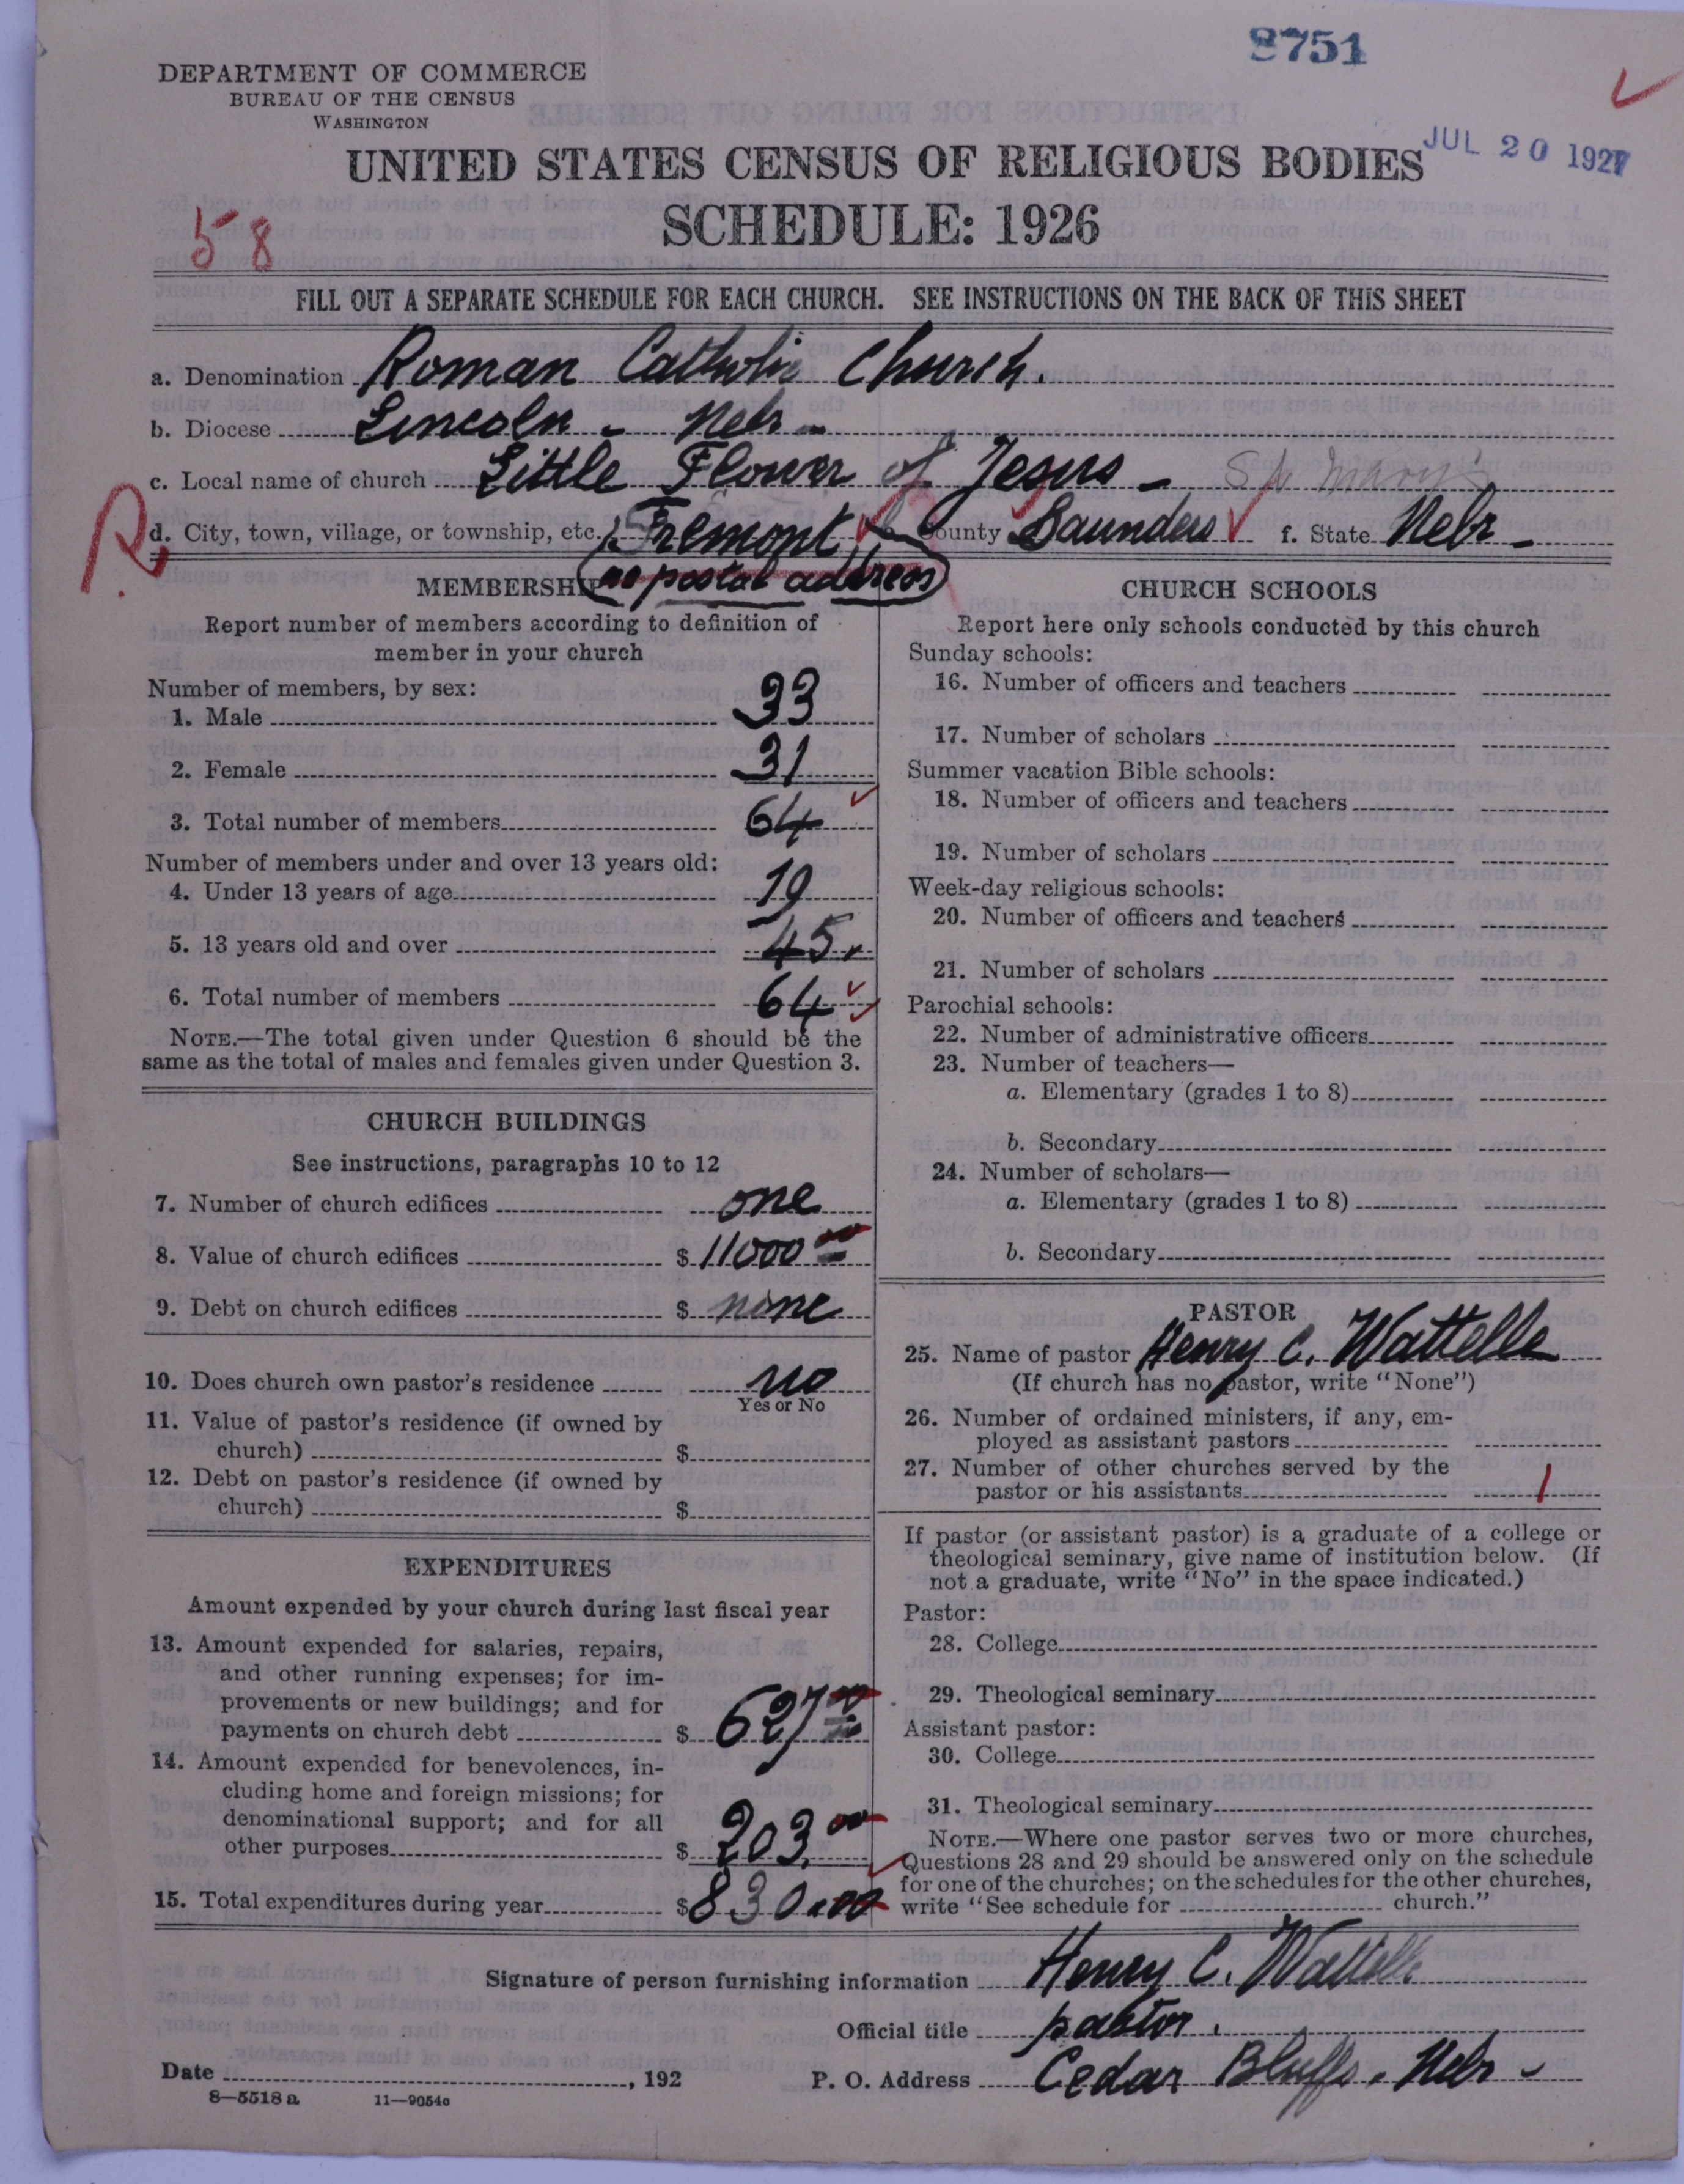 8751
DEPARTMENT OF COMMERCE
BUREAU OF THE CENSUS
WASHINGTON
JUL 20 1927
UNITED STATES CENSUS OF RELIGIOUS BODIES
58
SCHEDULE: 1926
FILL OUT A SEPARATE SCHEDULE FOR EACH CHURCH. SEE INSTRUCTIONS ON THE BACK OF THIS SHEET
a. Denomination Roman Catholic Church.
b. Diocese Lincoln - Nebr -
c. Local name of church Little Flower of Jesus - St. Mary's
R. d. City, town, village, or township, etc. Fremont County Saunders f. State Nebr -
no postal address
MEMBERSHIP
Report number of members according to definition of
member in your church
Number of members, by sex:
1. Male 33
2. Female 31
3. Total number of members 64
Number of members under and over 13 years old:
4. Under 13 years of age 19
5. 13 years old and over 45
6. Total number of members 64
NOTE.—The total given under Question 6 should be the
same as the total of males and females given under Question 3.
CHURCH BUILDINGS
See instructions, paragraphs 10 to 12
7. Number of church edifices one
8. Value of church edifices $ 11000 00
9. Debt on church edifices $ none
10. Does church own pastor's residence no
Yes or No
11. Value of pastor's residence (if owned by
church) $
12. Debt on pastor's residence (if owned by
church) $
EXPENDITURES
Amount expended by your church during last fiscal year
13. Amount expended for salaries, repairs,
and other running expenses; for im-
provements or new buildings; and for
payments on church debt $ 627 00
14. Amount expended for benevolences, in-
cluding home and foreign missions; for
denominational support; and for all
other purposes $ 203.00
15. Total expenditures during year $ 830.00
CHURCH SCHOOLS
Report here only schools conducted by this church
Sunday schools:
16. Number of officers and teachers
17. Number of scholars
Summer vacation Bible schools:
18. Number of officers and teachers
19. Number of scholars
Week-day religious schools:
20. Number of officers and teachers
21. Number of scholars
Parochial schools:
22. Number of administrative officers
23. Number of teachers—
a. Elementary (grades 1 to 8)
b. Secondary
24. Number of scholars—
a. Elementary (grades 1 to 8)
b. Secondary
PASTOR
25. Name of pastor Henry C. Wattelle
(If church has no pastor, write "None")
26. Number of ordained ministers, if any, em-
ployed as assistant pastors
27. Number of other churches served by the
pastor or his assistants 1
If pastor (or assistant pastor) is a graduate of a college or
theological seminary, give name of institution below. (If
not a graduate, write "No" in the space indicated.)
Pastor:
28. College
29. Theological seminary
Assistant pastor:
30. College
31. Theological seminary
NOTE.—Where one pastor serves two or more churches,
Questions 28 and 29 should be answered only on the schedule
for one of the churches; on the schedules for the other churches,
write "See schedule for church."
Signature of person furnishing information Henry C. Wattelle
Official title pastor.
Date , 192 P. O. Address Cedar Bluffs. Nebr -
8—5518 a 11—9054c